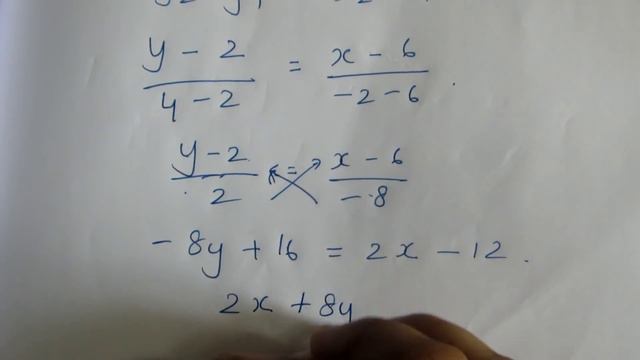 y - 2 / 4 - 2 = x - 6 / -2 - 6 .
y - 2 / 2 = x - 6 / -8
- 8y + 16 = 2x - 12 .
2x + 8y